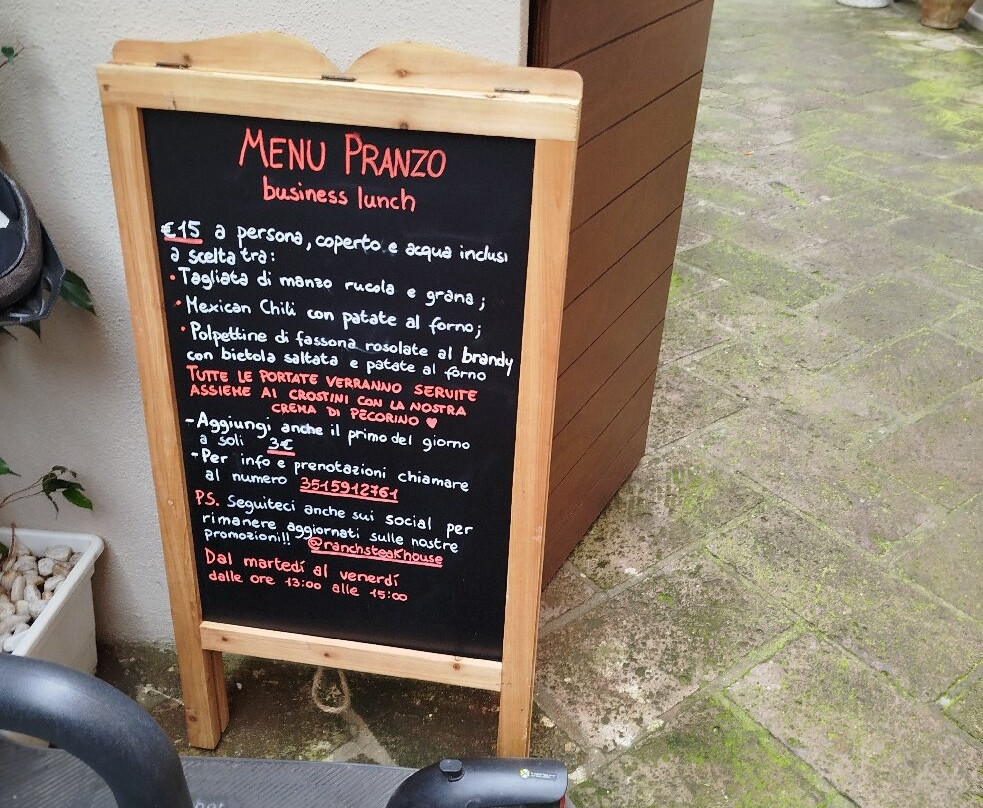 MENU PRANZO
business lunch
€15 a persona, coperto e acqua inclusi
a scelta tra:
• Tagliata di manzo rucola e grana;
• Mexican Chili con patate al forno;
• Polpettine di fassona rosolate al brandy
con bietola saltata e patate al forno
TUTTE LE PORTATE VERRANNO SERVITE
ASSIEME AI CROSTINI CON LA NOSTRA
CREMA DI PECORINO ♥
- Aggiungi anche il primo del giorno
a soli 3€
- Per info e prenotazioni chiamare
al numero 3515912761
PS. Seguiteci anche sui social per
rimanere aggiornati sulle nostre
promozioni!! @ranchsteakhouse
Dal martedí al venerdí
dalle ore 13:00 alle 15:00